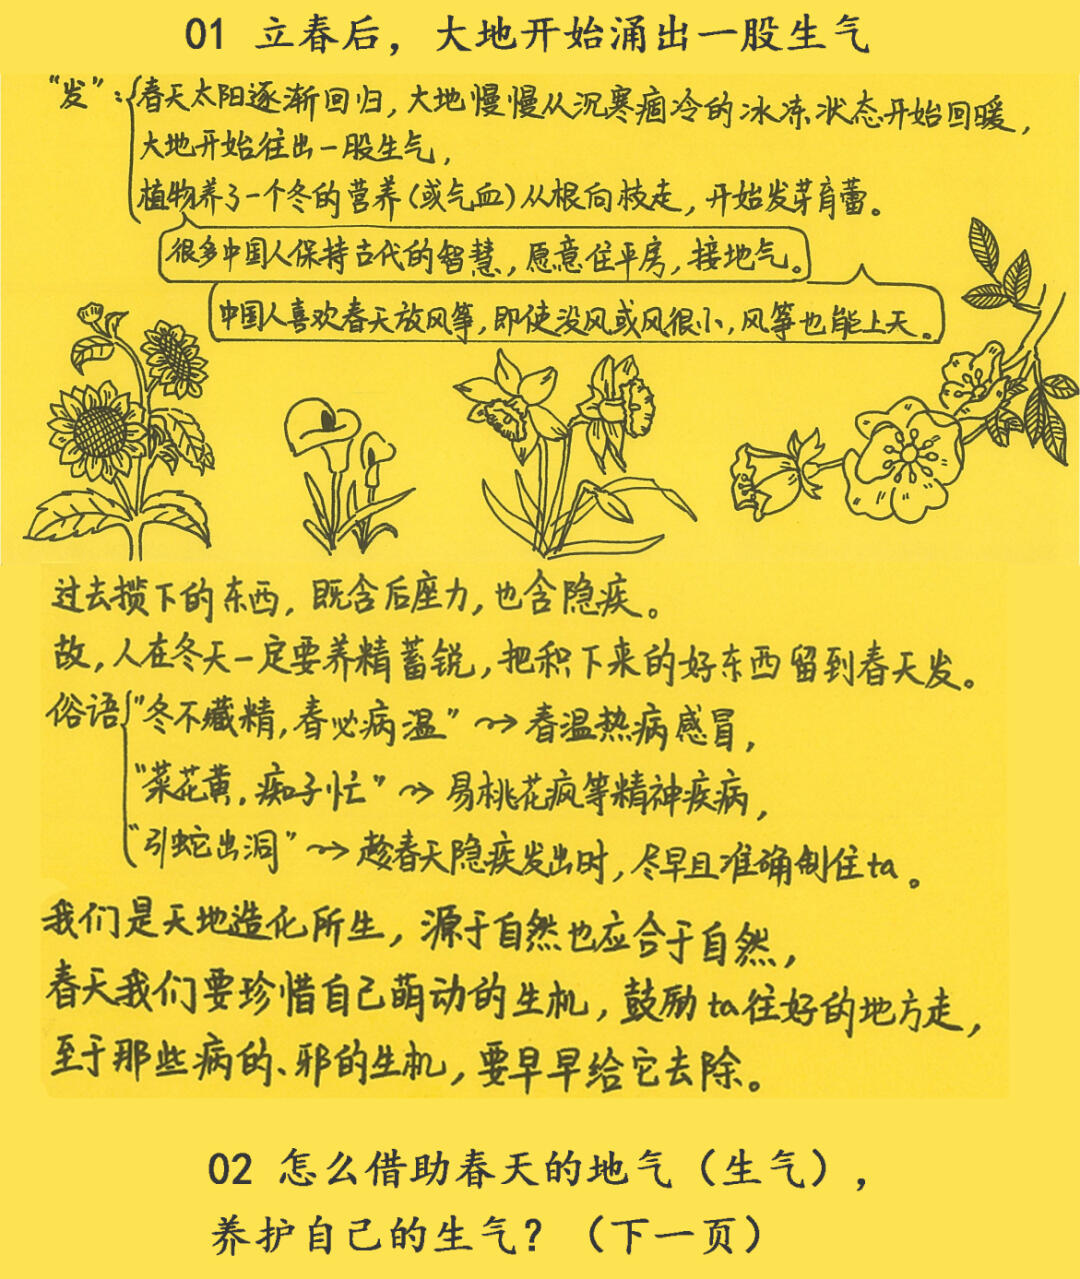 01 立春后，大地开始涌出一股生气
“发”：春天太阳逐渐回归，大地慢慢从沉寒痼冷的冰冻状态开始回暖，
大地开始往出一股生气，
植物养了一个冬的营养（或气血）从根向枝走，开始发芽育蕾。
很多中国人保持古代的智慧，愿意住平房，接地气。
中国人喜欢春天放风筝，即使没风或风很小，风筝也能上天。
过去攒下的东西，既含后座力，也含隐疾。
故，人在冬天一定要养精蓄锐，把积下来的好东西留到春天发。
俗语“冬不藏精，春必病温”→春温热病感冒，
“菜花黄，痴子忙”→易桃花疯等精神疾病，
“引蛇出洞”→趁春天隐疾发出时，尽早且准确制住ta。
我们是天地造化所生，源于自然也应合于自然，
春天我们要珍惜自己萌动的生机，鼓励ta往好的地方走，
至于那些病的、邪的生机，要早早给它去除。
02 怎么借助春天的地气（生气），
养护自己的生气？（下一页）